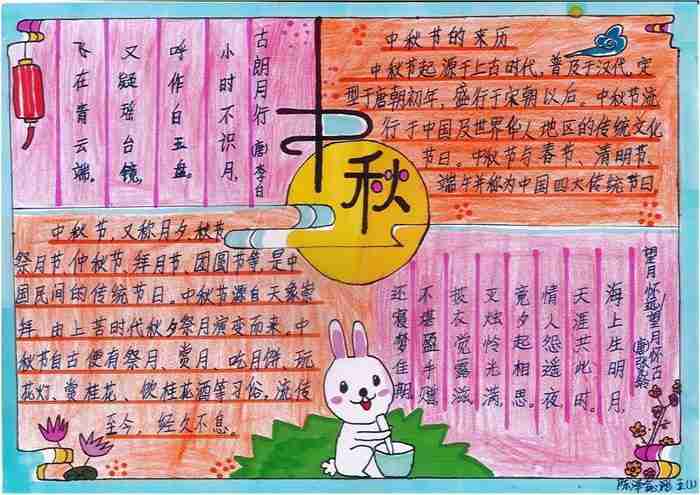 中秋
古朗月行 (唐)李白
小时不识月,
呼作白玉盘。
又疑瑶台镜,
飞在青云端。
中秋节的来历
中秋节起源于上古时代,普及于汉代,定
型于唐朝初年,盛行于宋朝以后。中秋节流
行于中国及世界华人地区的传统文化
节日。中秋节与春节、清明节、
端午并称为中国四大传统节日
中秋节,又称月夕、秋节
祭月节、仲秋节、拜月节、团圆节等,是中
国民间的传统节日。中秋节源自天象崇
拜,由上古时代秋夕祭月演变而来。中
秋节自古便有祭月、赏月、吃月饼、玩
花灯、赏桂花、饮桂花酒等习俗,流传
至今,经久不息。
望月怀远/望月怀古
(唐)张九龄
海上生明月,
天涯共此时。
情人怨遥夜
竟夕起相思。
灭烛怜光满,
披衣觉露滋
不堪盈手赠
还寝梦佳期。